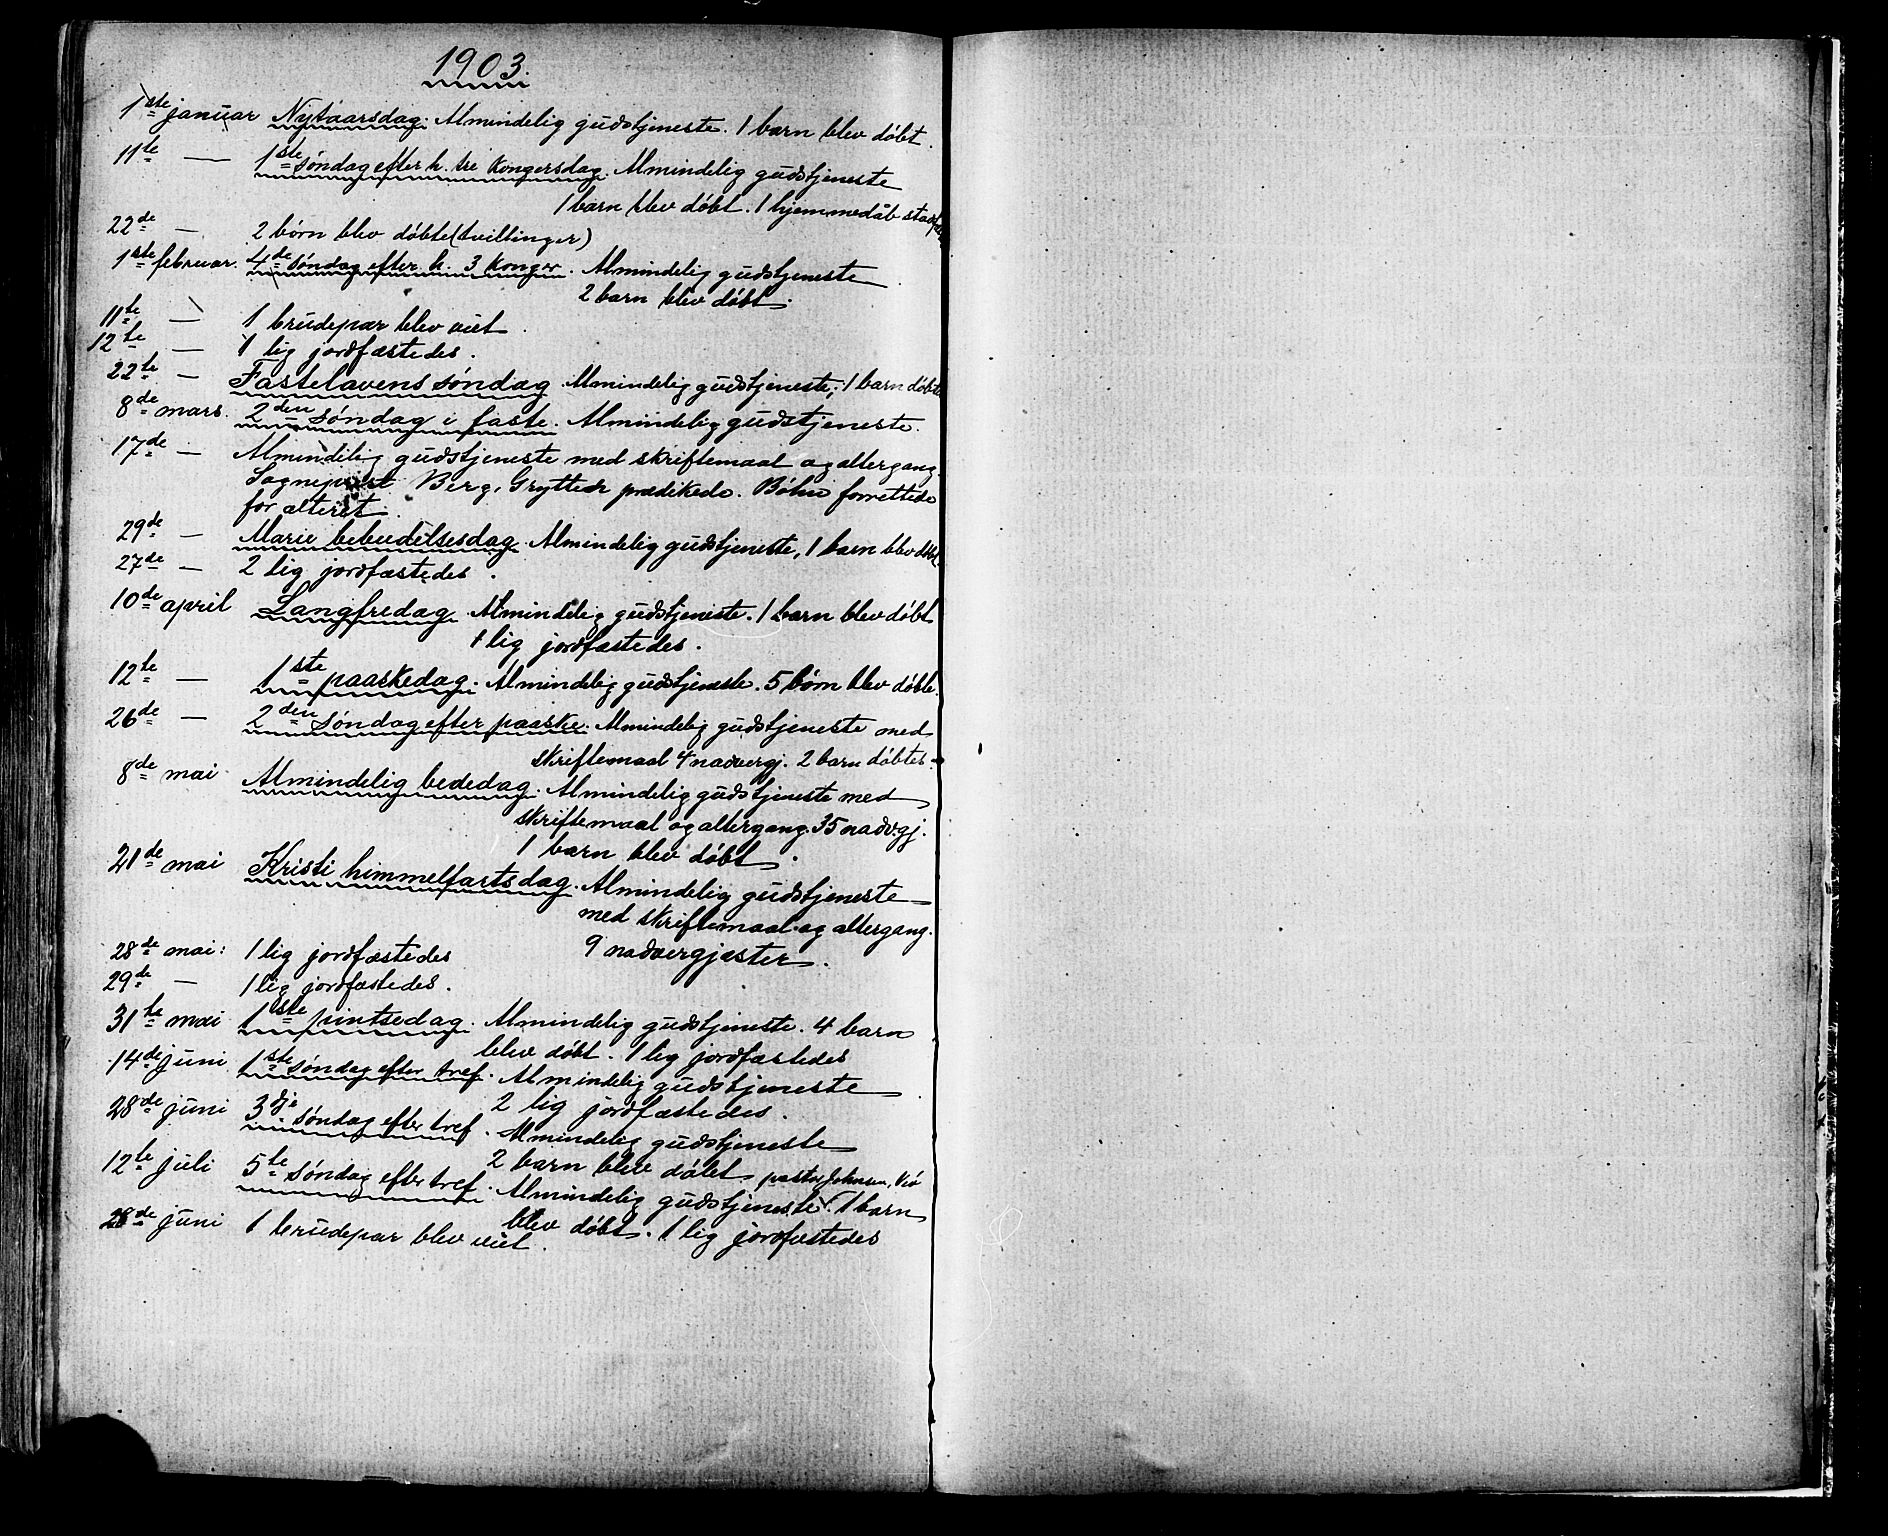 1903.
1ste januar Nytaarsdag. Almindelig gudstjeneste. 1 barn blev døbt.
11te — 1ste søndag efter h. tre kongersdag. Almindelig gudstjeneste
1 barn blev døbt. 1 hjemmedåb
22de — 2 børn blev døbte (tvillinger)
1ste februar. 4de søndag efter h. 3 konger. Almindelig gudstjeneste
2 barn blev døbt.
11te — 1 brudepar blev viet.
12te — 1 lig jordfæstedes.
22te — Fastelavens søndag. Almindelig gudstjeneste; 1 barn døbtes
8de mars. 2den søndag i faste. Almindelig gudstjeneste.
17de — Almindelig gudstjeneste med skriftemaal og altergang.
Sogneprest Berg, Grytten prædikede. Bøhn forrettede
for alteret.
29de — Marie bebudelsesdag. Almindelig gudstjeneste, 1 barn blev døbt.
27de — 2 lig jordfæstedes.
10de april Langfredag. Almindelig gudstjeneste. 1 barn blev døbt
1 lig jordfæstedes.
12te — 1ste paaskedag. Almindelig gudstjeneste. 5 børn blev døbte.
26de — 2den søndag efter paaske. Almindelig gudstjeneste med
skriftemaal 4 nadvergj. 2 barn døbtes.
8de mai Almindelig bededag. Almindelig gudstjeneste med
skriftemaal og altergang. 35 nadv.gj.
1 barn blev døbt.
21de mai Kristi himmelfartsdag. Almindelig gudstjeneste
med skriftemaal og altergang.
9 nadvergjæster.
28de mai: 1 lig jordfæstedes
29de — 1 lig jordfæstedes.
31te mai 1ste pintsedag. Almindelig gudstjeneste. 4 barn
blev døbt. 1 lig jordfæstedes
14de juni 1ste søndag efter tref. Almindelig gudstjeneste
2 lig jordfæstedes.
28de juni 3dje søndag efter tref. Almindelig gudstjeneste
2 barn blev døbt
12te juli 5te søndag efter tref. Almindelig gudstjeneste pastor Johnsen, . 1 barn
blev døbt. 1 lig jordfæstedes
28de juni 1 brudepar blev viet.